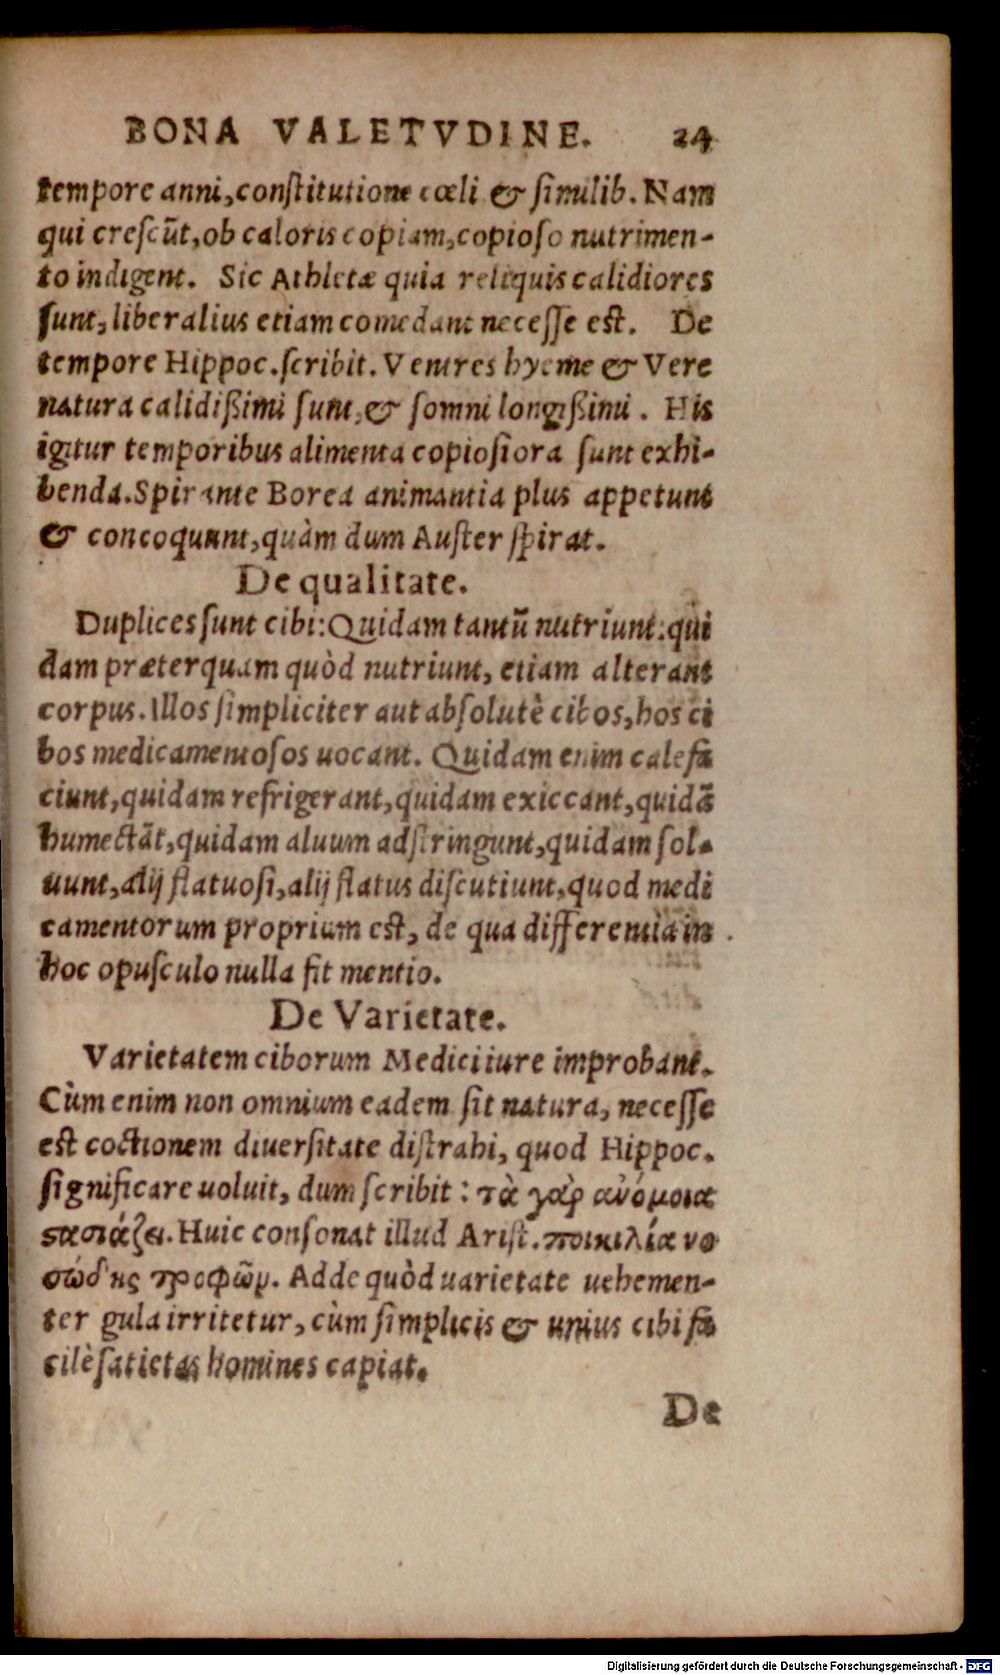 BONA VALETVDINE. 24
tempore anni, constitutione cœli & similib. Nam
qui crescũt, ob caloris copiam, copioso nutrimen-
to indigent. Sic Athletæ quia reliquis calidiores
sunt, liberalius etiam comedant necesse est. De
tempore Hippoc. scribit. Ventres hyeme & Vere
natura calidißimi sunt, & somni longißimi. His
igitur temporibus alimenta copiosiora sunt exhi-
benda. Spirante Borea animantia plus appetunt
& concoquunt, quàm dum Auster spirat.
De qualitate.
Duplices sunt cibi: Quidam tantũ nutriunt: qui
dam præterquam quòd nutriunt, etiam alterant
corpus. Illos simpliciter aut absolutè cibos, hos ci
bos medicamentosos uocant. Quidam enim calefa
ciunt, quidam refrigerant, quidam exiccant, quidã
humectãt, quidam aluum adstringunt, quidam sol-
uunt, alij flatuosi, alij flatus discutiunt, quod medi
camentorum proprium est, de qua differentia in
hoc opusculo nulla fit mentio.
De Varietate.
Varietatem ciborum Medici iure improbant.
Cùm enim non omnium eadem sit natura, necesse
est coctionem diuersitate distrahi, quod Hippoc.
significare uoluit, dum scribit: τὰ γὰρ ἀνόμοια
ϛασιάζει. Huic consonat illud Arist. ποικιλία νο
σώδης τροφῶν. Adde quòd uarietate uehemen-
ter gula irritetur, cùm simplicis & unius cibi fa
cilè satietas homines capiat.
De
Digitalisierung gefördert durch die Deutsche Forschungsgemeinschaft - DFG